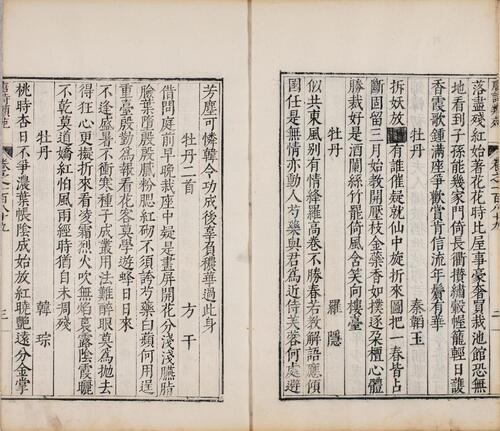 落盡殘紅始著花花時比屋事豪奢買栽池館恐無
地看到子孫能幾家門倚長衢攢繡轂幄籠輕日護
香霞歌鍾滿座爭歡賞肯信流年鬢有華
牡丹
秦韜玉
拆妖放
有誰催疑就仙中旋折來圖把一春皆占
斷固留三月始教開壓枝金蘂香如撲逐朶檀心體
勝裁好是酒闌絲竹罷倚風含笑向樓臺
牡丹
羅隱
似共東風别有情絳羅高卷不勝春若教解語應傾
國任是無情亦動人芍藥與君爲近侍芙蓉何處避
芳塵可憐韓令功成後辜負穠華過此身
牡丹二首
方干
借問庭前早晚栽座中疑是畫屏開花分淺淺臙脂
臉葉墮殷殷膩粉腮紅砌不須誇芍藥白蘋何用逞
重臺殷勤爲報看花客莫學遊蜂日日來
不逢盛暑不衝寒種子成叢用法難醉眼莫爲抛去
得狂心更擬折來看凌霜烈火吹無焰裛露陰霞曬
不乾莫道嬌紅怕風雨經時猶自未凋殘
牡丹
韓琮
桃時杏日不爭濃葉帳陰成始放紅曉艷遠分金掌
三